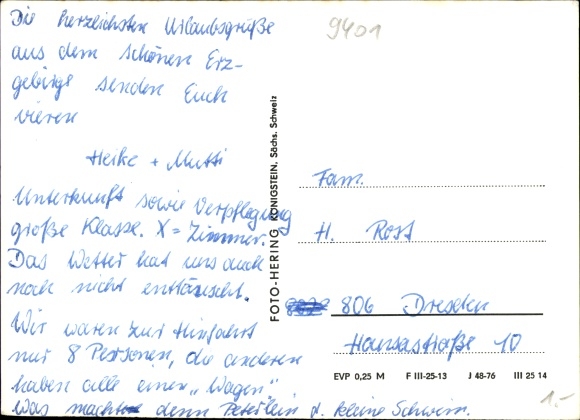 Die herzlichsten Urlaubsgrüße
aus dem schönen Erz-
gebirge senden Euch
vieren
Heike + Mutti
Unterkunft sowie Verpflegung
große Klasse. X = Zimmer.
Das Wetter hat uns auch
noch nicht enttäuscht.
Wir waren zur Hinfahrt
nur 8 Personen, die anderen
haben alle einen „Wagen“
Was macht denn Peterlein d. kleine Schwein.
9401
FOTO-HERING KÖNIGSTEIN, Sächs. Schweiz
Fam.
H. Rost
806 Dresden
Hansastraße 10
EVP 0,25 M F III-25-13 J 48-76 III 25 14
1,-